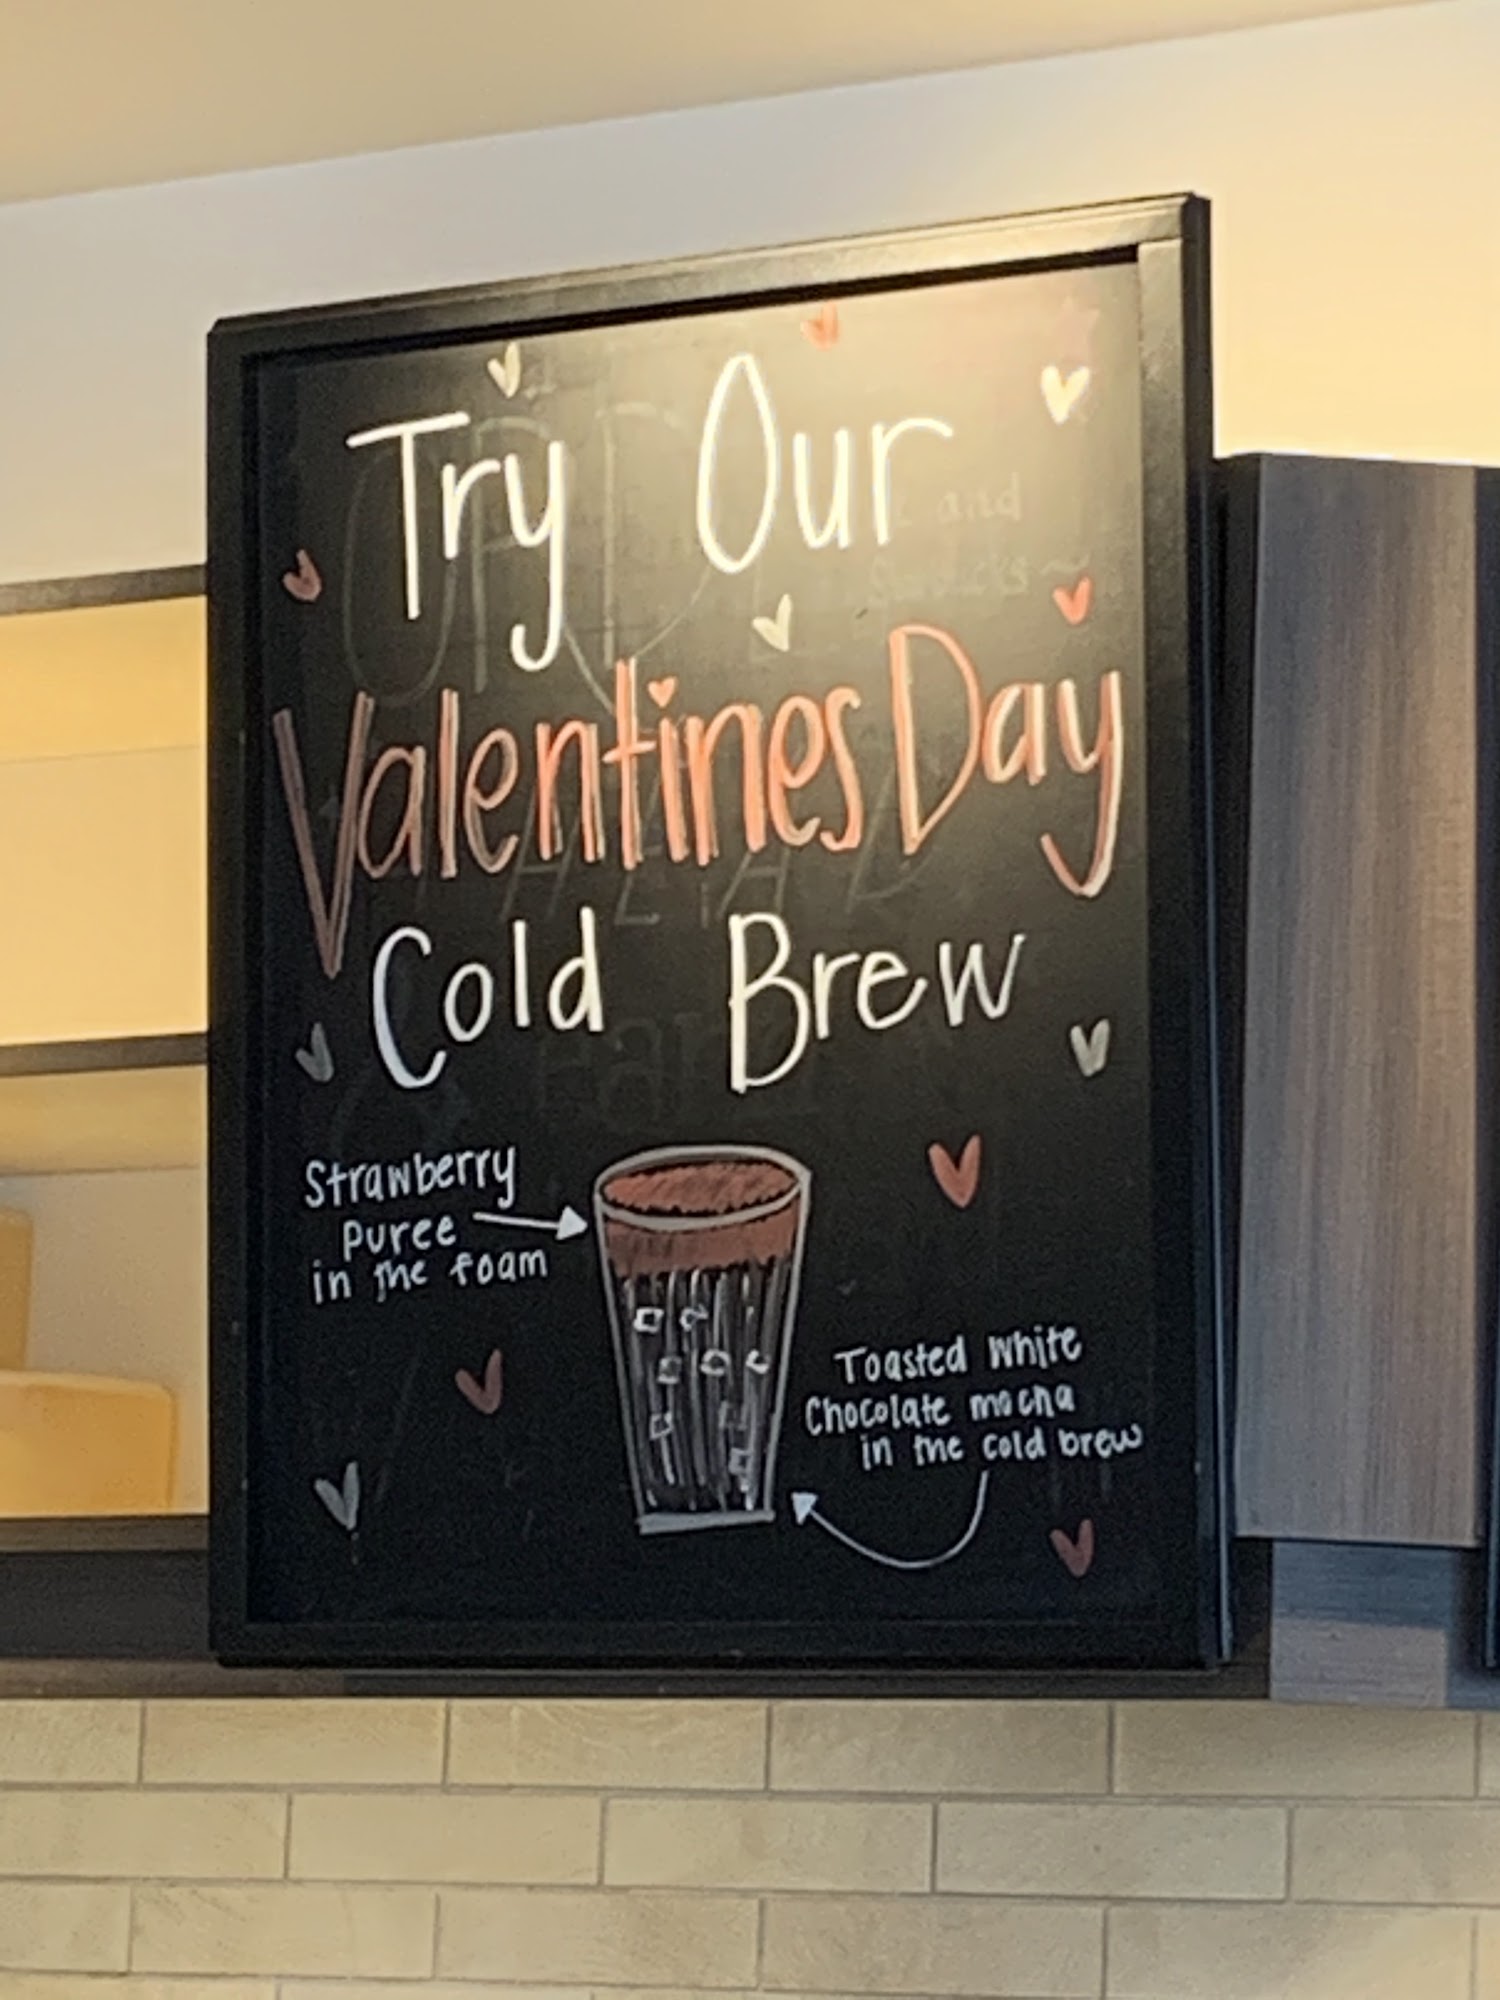 Try Our
Valentines Day
Cold Brew
Strawberry
Puree
in the foam
Toasted White
Chocolate mocha
in the cold brew